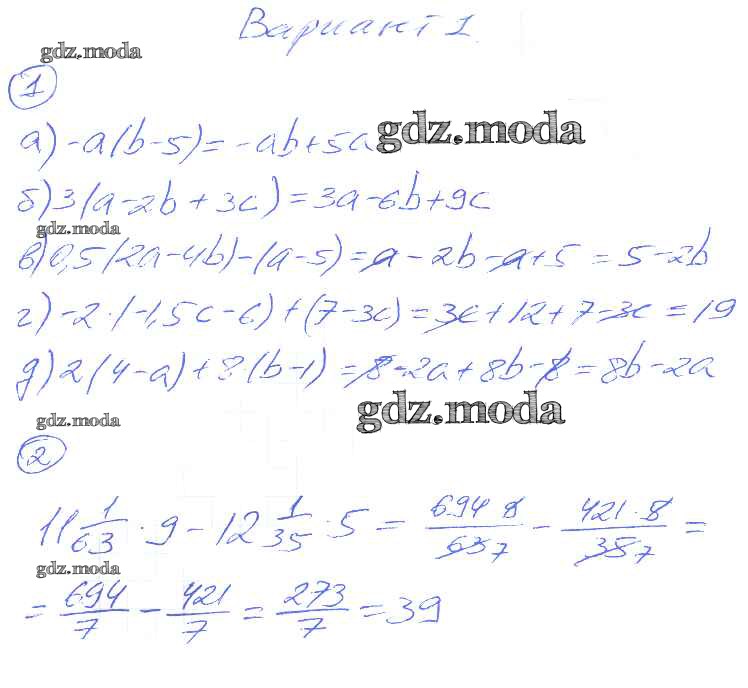 Вариант 1
gdz.moda
1
а) -a(b-5)= -ab+5a gdz.moda
б) 3(a-2b+3c)=3a-6b+9c
gdz.moda
в) 0,5(2a-4b)-(a-5)=a-2b-a+5=5-2b
г) -2·(-1,5c-6)+(7-3c)=3c+12+7-3c=19
д) 2(4-a)+8(b-1)=8-2a+8b-8=8b-2a
gdz.moda
gdz.moda
2
11 1/63 · 9 - 12 1/35 · 5 = 694·9/63 7 - 421·5/35 7 =
gdz.moda
= 694/7 - 421/7 = 273/7 = 39